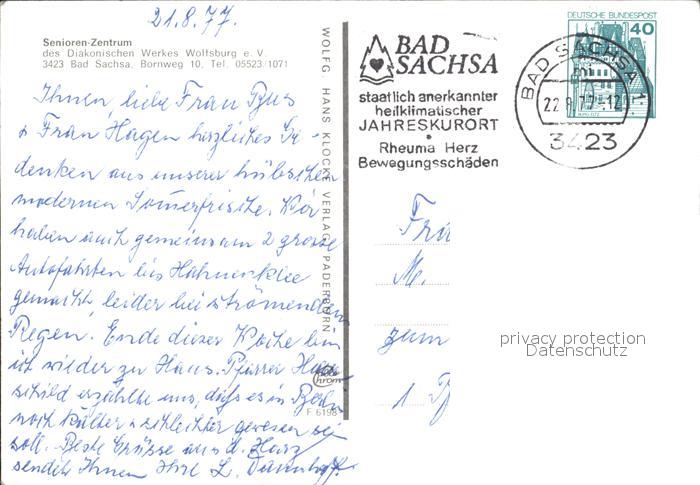 21.8.77.
Senioren-Zentrum
des Diakonischen Werkes Wolfsburg e. V.
3423 Bad Sachsa, Bornweg 10, Tel. 05523/1071
Ihnen, liebe Frau
u Frau Hagen herzliches Ge-
denken aus unserer hübschen
modernen Sommerfrische. Wir
haben auch gemeinsam 2 grosse
Autofahrten bis Hahnenklee
gemacht, leider bei strömendem
Regen. Ende dieser Woche bin
ich wieder zu Haus. Pfarrer
schild erzählte uns, dass es in Berlin
noch kälter u schlechter gewesen sei
soll. Beste Grüsse aus d. Harz
sendet Ihnen Ihre L.
WOLFG. HANS KLOCKE VERLAG, PADERBORN
chrom
F 6198
BAD
SACHSA
staatlich anerkannter
heilklimatischer
JAHRESKURORT
Rheuma Herz
Bewegungsschäden
DEUTSCHE BUNDESPOST
40
BAD SACHSA 1
22.8.77-12
3423
Frau
M.
zum
1
privacy protection
Datenschutz